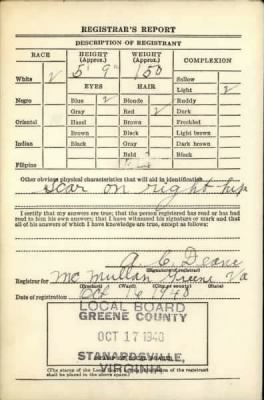 REGISTRAR'S REPORT
DESCRIPTION OF REGISTRANT
RACE
HEIGHT (Approx.)
WEIGHT (Approx.)
COMPLEXION
5' 9" 150
White
EYES
HAIR
Sallow
Light
Negro
Blue
Blonde
Ruddy
Gray
Red
Dark
Oriental
Hazel
Brown
Freckled
Brown
Black
Light brown
Indian
Black
Gray
Dark brown
Bald
Black
Filipino
Other obvious physical characteristics that will aid in identification
Scar on right hip
I certify that my answers are true; that the person registered has read or has had
read to him his own answers; that I have witnessed his signature or mark and that
all of his answers of which I have knowledge are true, except as follows:
A. C. Deane
(Signature of registrar)
Registrar for McMullan Greene Va
(Precinct) (Ward) (City or county) (State)
Date of registration Oct 16 1940
LOCAL BOARD
GREENE COUNTY
OCT 17 1940
STANARDSVILLE,
VIRGINIA
(STAMP OF LOCAL BOARD)
(The stamp of the Local Board of the registrant
shall be placed in the above space.)